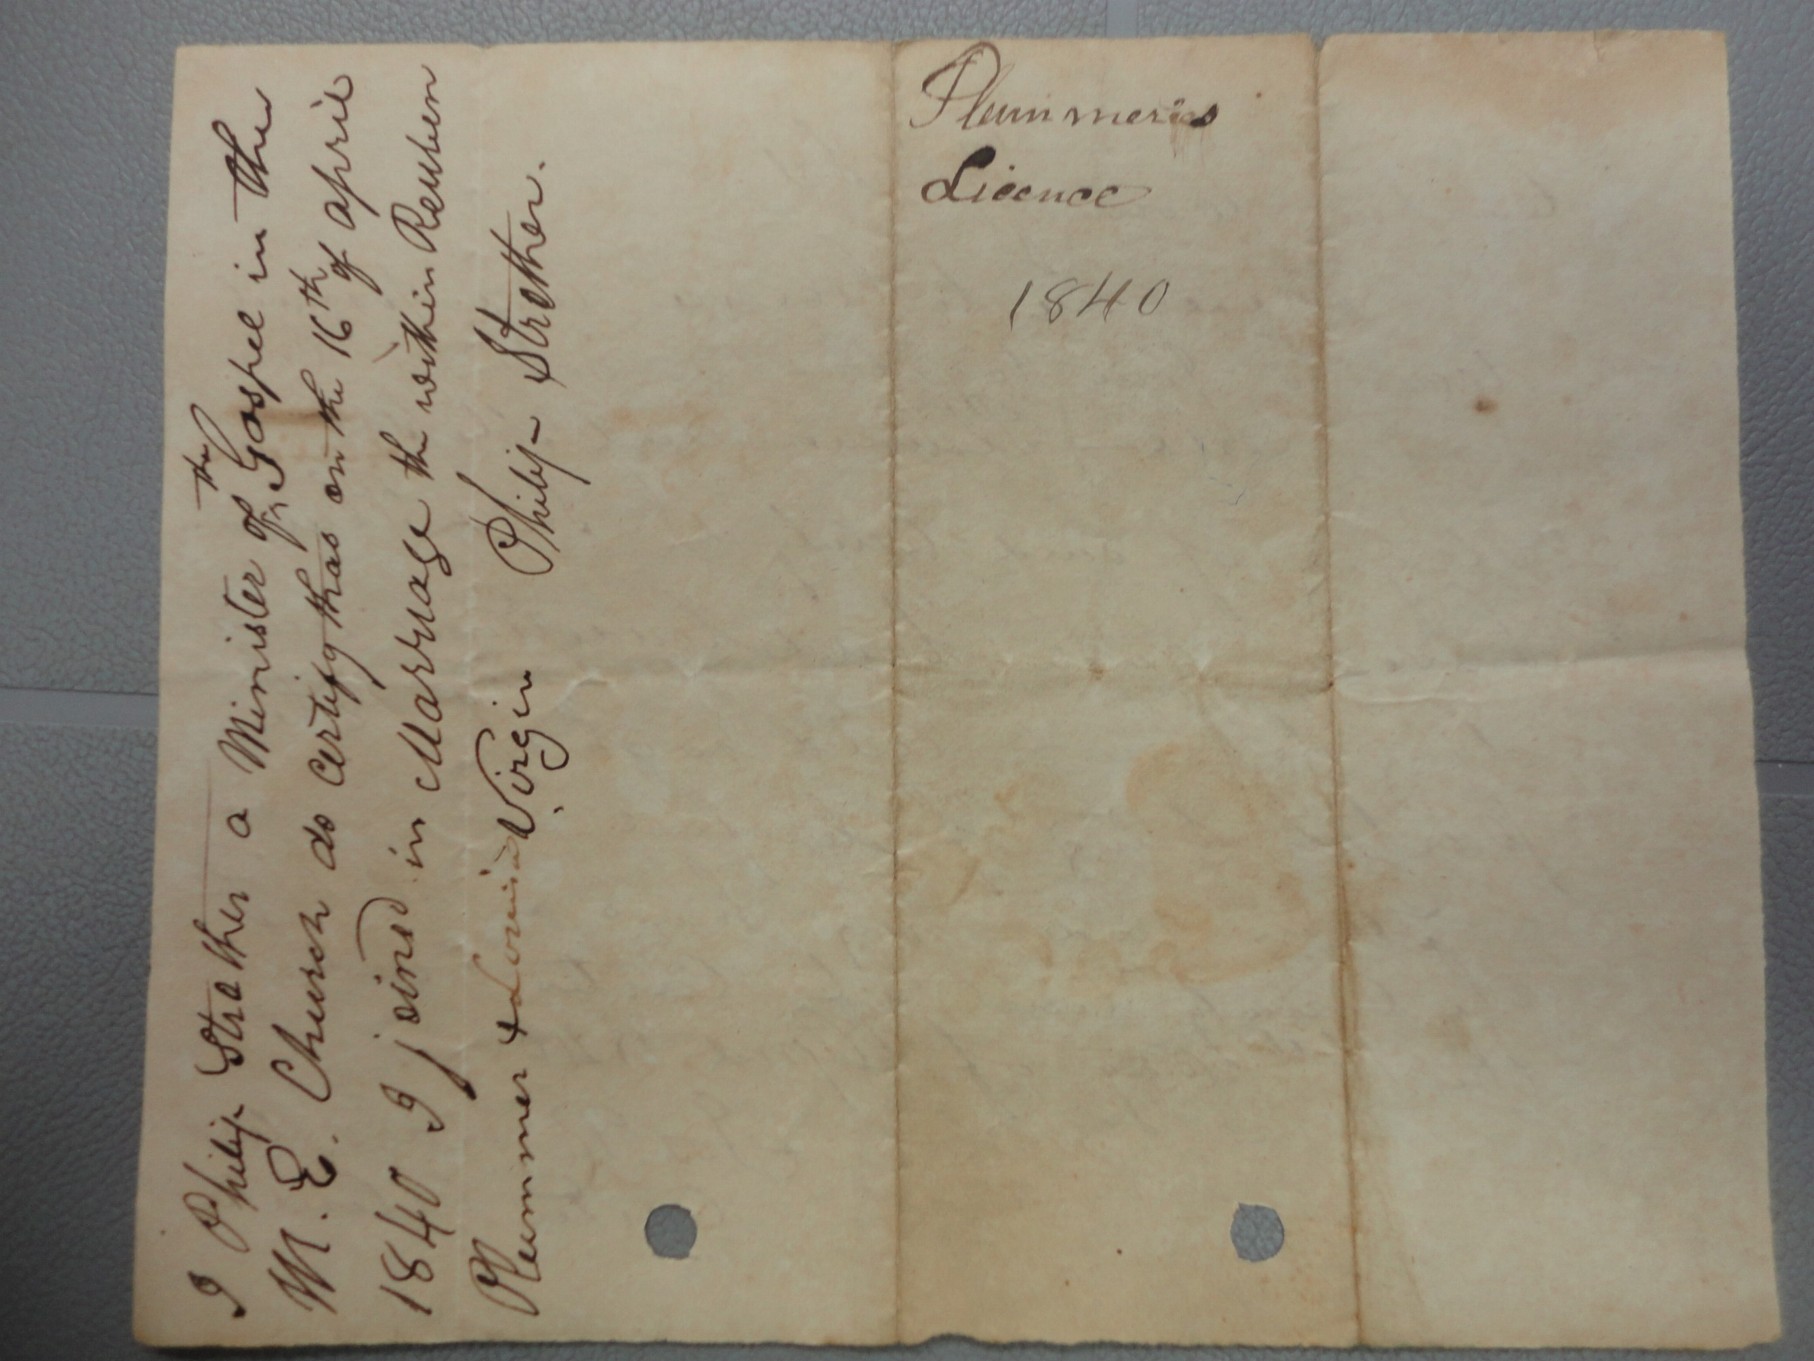 I Philip Strother a Minister of the Gospel in the
M. E. Church do certify thas on the 16th of aprie
1840 I joind in Marriage the within Reuben
Plummer & Lovisia Virgin Philip Strother.
Plummer's
Licence
1840